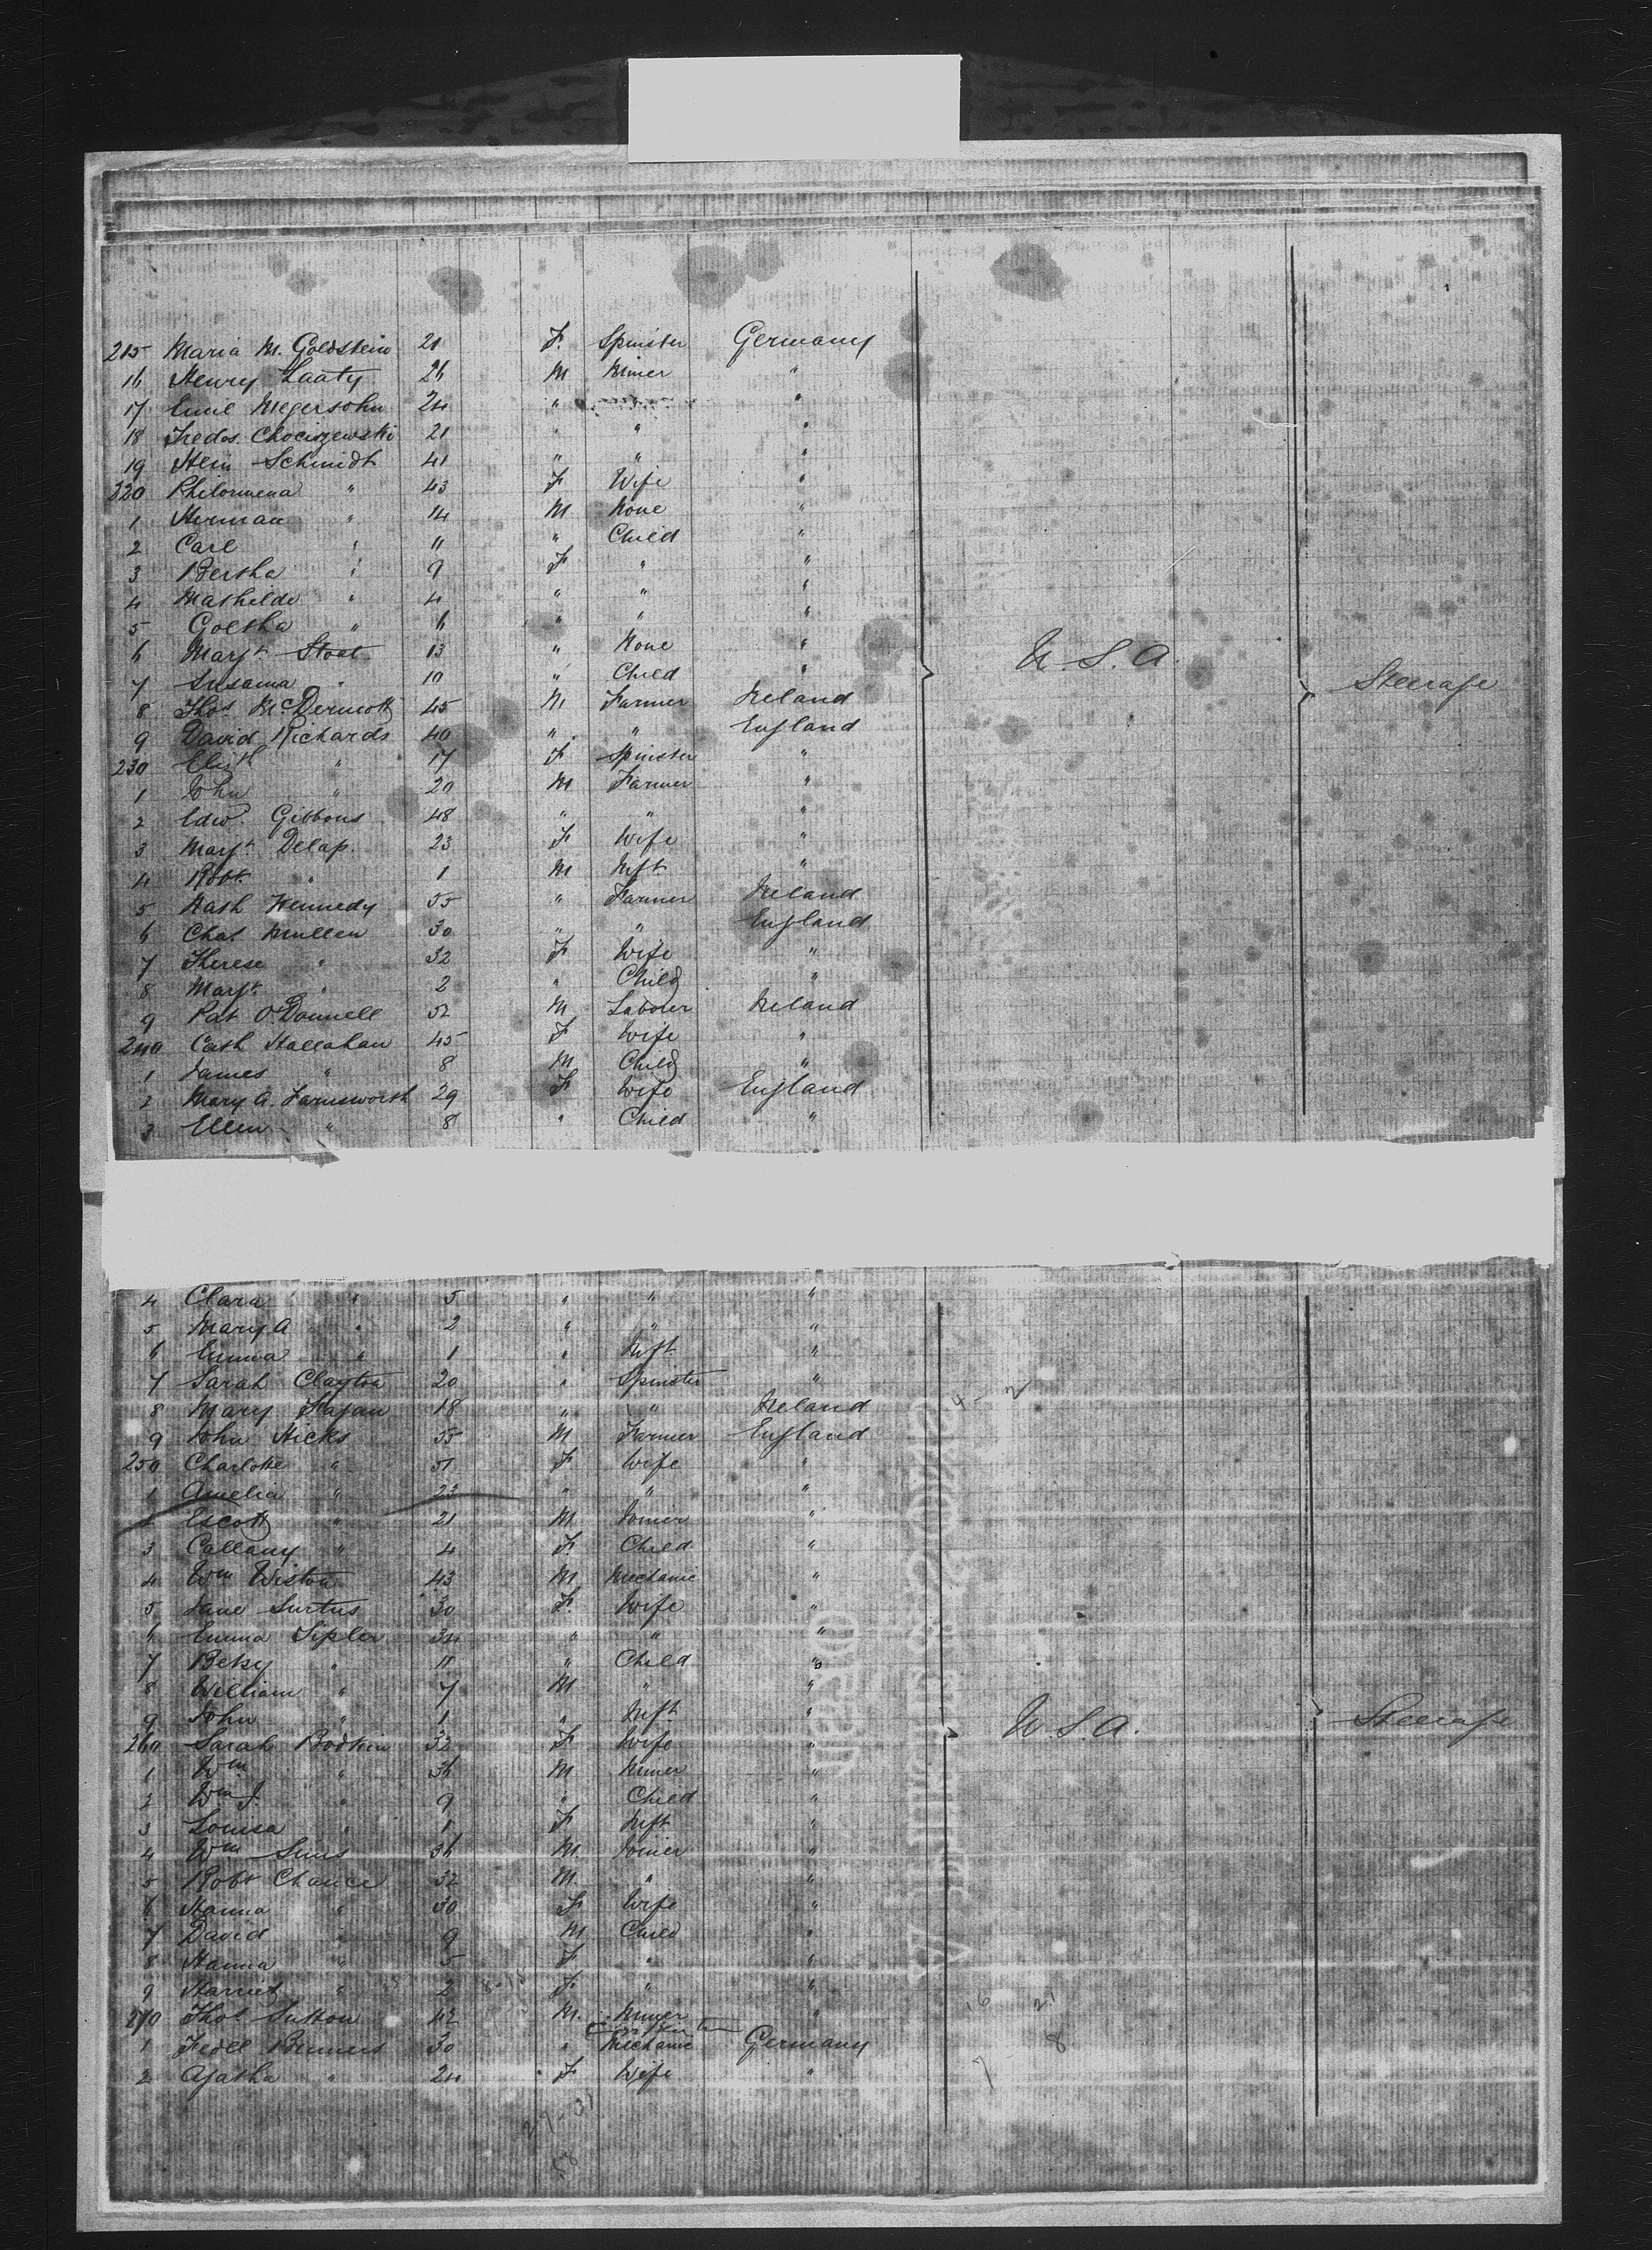 215 Maria M. Goldstein 21 F. Spinster Germany
16 Henry Laaty 26 M Miner "
17 Emil Megersohn 24 " "
18 Fredos. Chociszewski 21 " " "
19 Hein Schmidt 41 " " "
220 Philomena " 43 F Wife "
1 Herman " 14 M None "
2 Carl " 11 " Child "
3 Bertha " 9 F " "
4 Mathilde " 4 " " "
5 Goltha " 6 " " "
6 Margt. Stoat 13 " None "
7 Susanna " 10 " Child "
8 Thos McDermott 45 M Farmer Ireland
9 David Richards 40 " " England
230 Elisth " 17 F Spinster "
1 John " 20 M Farmer "
2 Edw. Gibbons 48 " " "
3 Margt. Delap. 23 F Wife "
4 Robt. " 1 M Inft "
5 Nash Kennedy 55 " Farmer Ireland
6 Chas Mullen 30 " " England
7 Therese " 32 F Wife "
8 Margt. " 2 " Child "
9 Pat O'Donnell 52 M Labourer Ireland
240 Cath Hallahan 45 F Wife "
1 James " 8 M Child "
2 Mary A. Farnsworth 29 F Wife England
3 Ellen " 8 " Child "
U.S.A. Steerage
4 Clara " 5 " " "
5 Mary A " 2 " " "
6 Emma " 1 " Inft "
7 Sarah Clayton 20 " Spinster "
8 Mary Hagan 18 " " Ireland
9 John Hicks 55 M Farmer England
250 Charlotte " 51 F Wife "
1 Amelia " 23 " " "
2 Escott " 21 M Joiner "
3 Callany " 4 F Child "
4 Wm Wiston 43 M Mechanic "
5 Jane Surtus 30 F. Wife "
6 Emma Sipler 34 " " "
7 Betsy " 11 " Child "
8 William " 7 M " "
9 John " 1 " Inft "
260 Sarah Bodkin 32 F Wife "
1 Wm " 36 M Miner "
2 Wm J. " 9 " Child "
3 Louisa " 1 F Inft "
4 Wm Sims 36 M Joiner "
5 Robt Chance 32 M. " "
6 Hanna " 30 F Wife "
7 David " 9 M Child "
8 Hanna " 5 F " "
9 Harriet " 2 F " "
270 Thos Sutton 42 M. Miner "
1 Fedel Bruners 30 " Mechanic Germany
2 Agatha " 24 F Wife "
U.S.A. Steerage